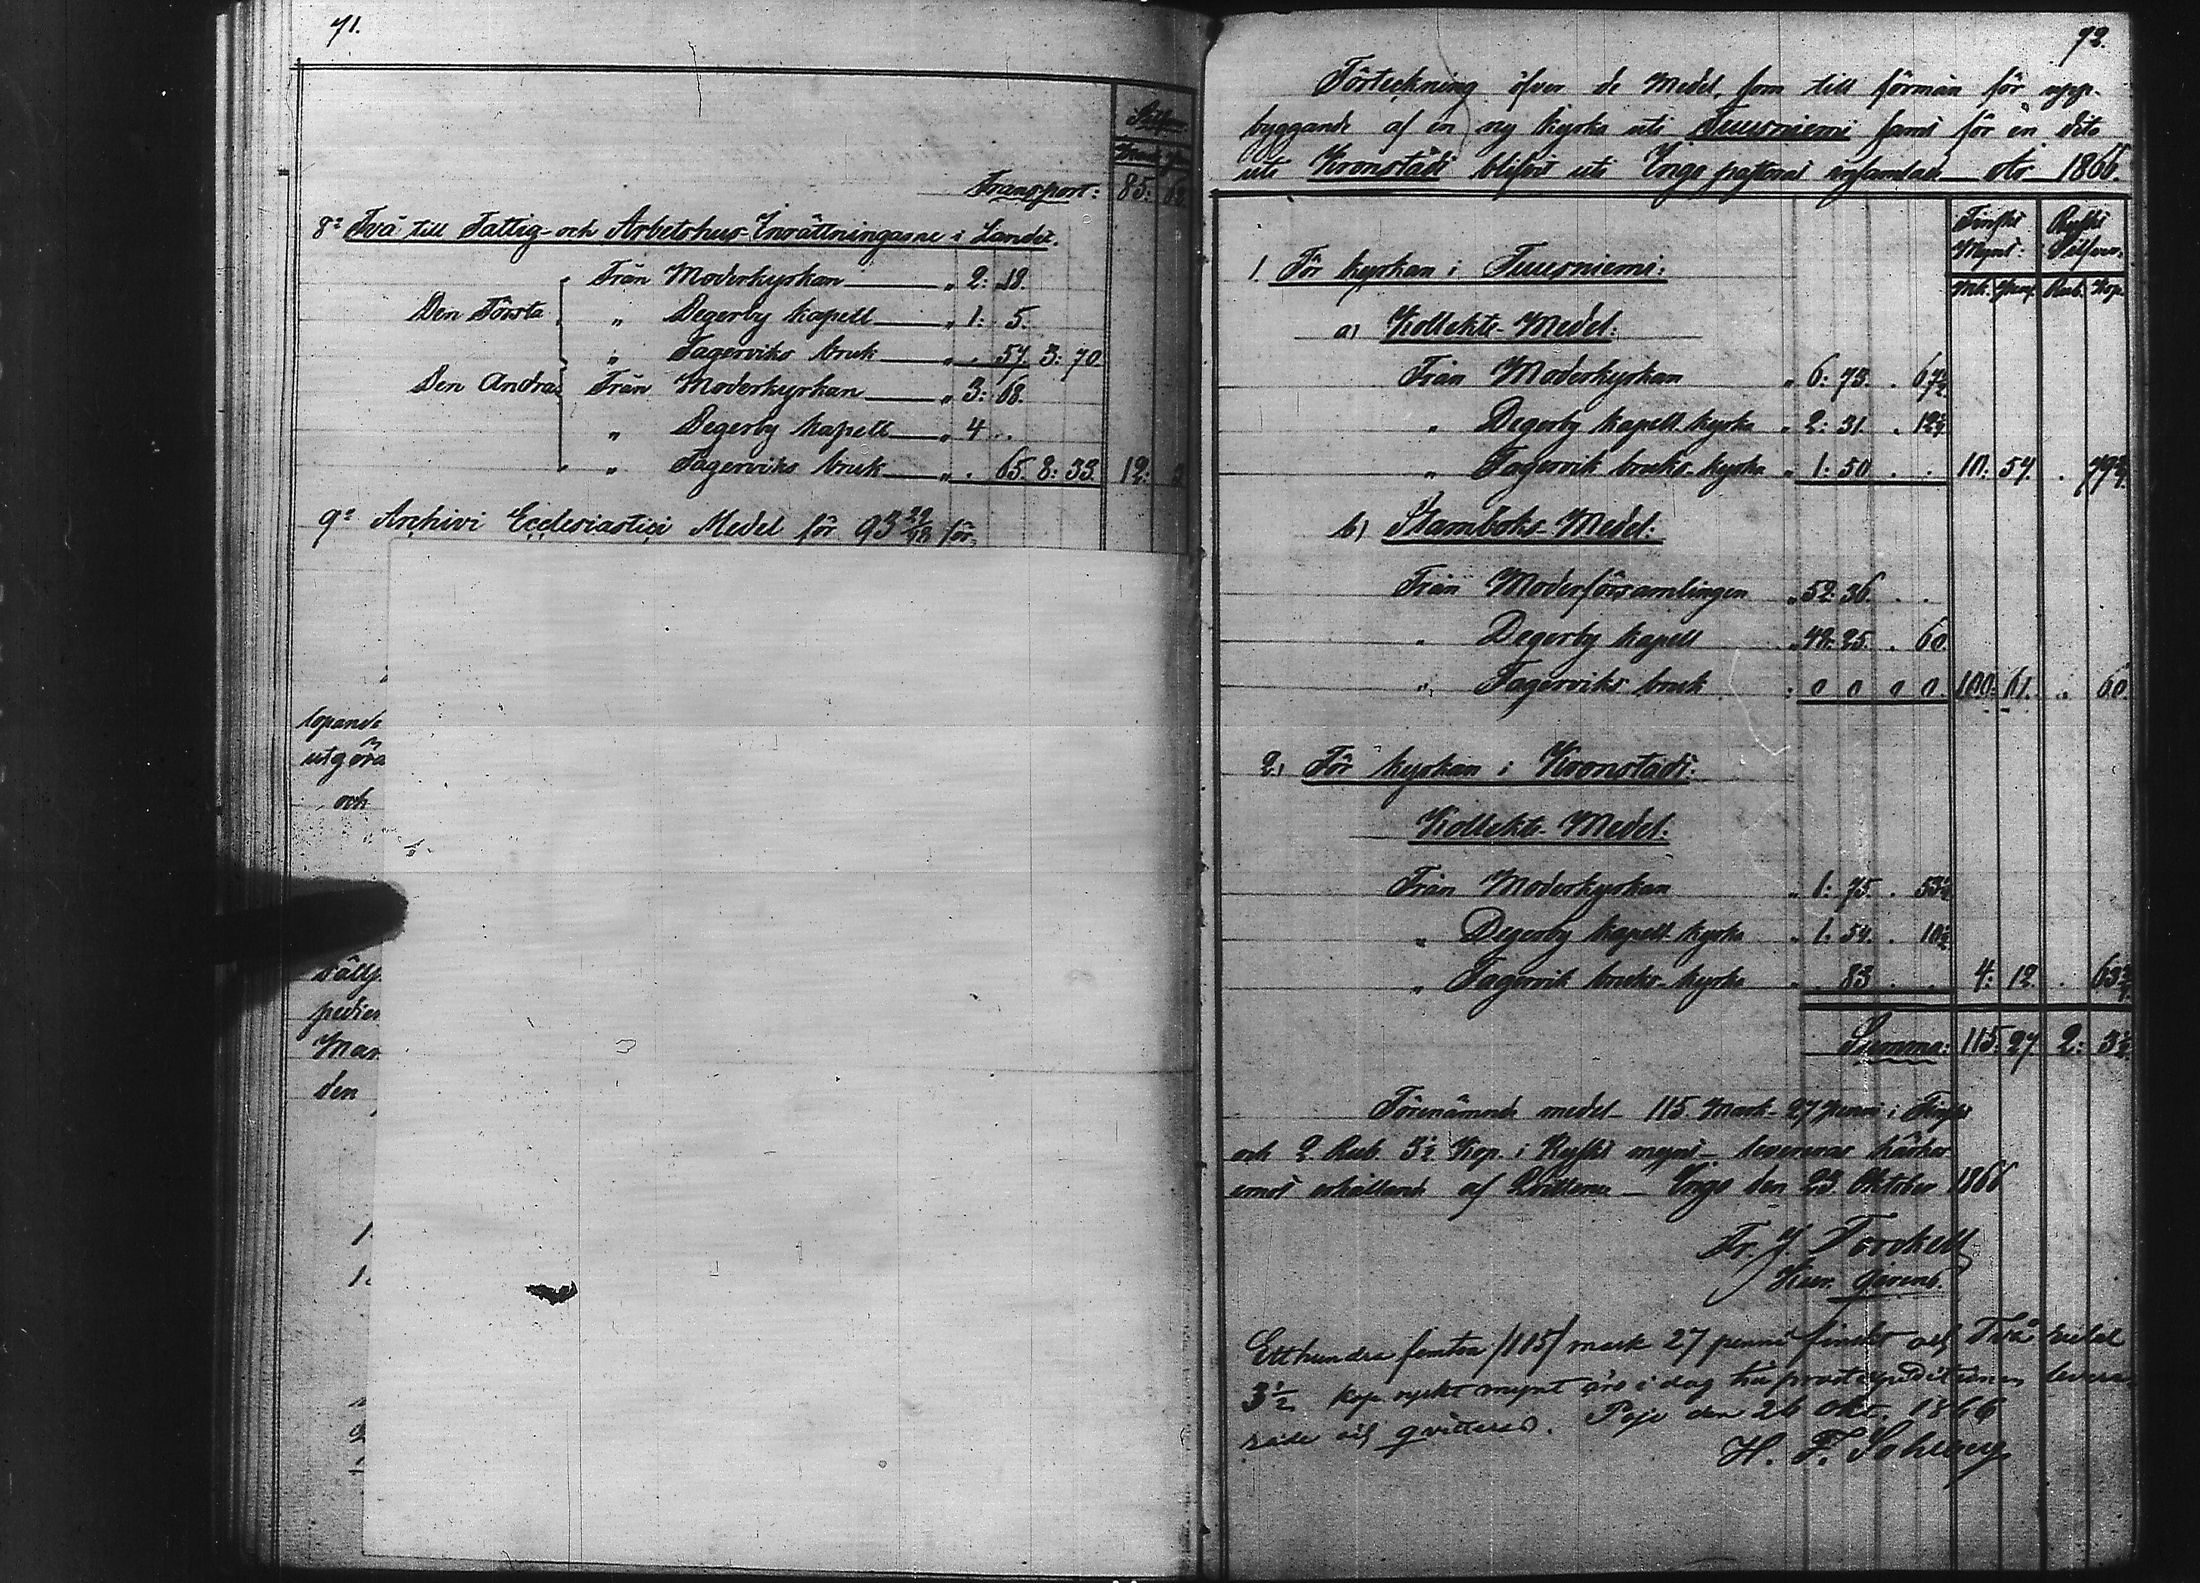 71.
Silfver
Mark Pen
Transport: 85: 68
8º Två till Fattig- och Arbetshus-Inrättningarne i Landet.
Den Första Från Moderkyrkan " 2: 18.
" Degerby kapell " 1: 5.
" Fagerviks bruk " . 57. 3: 70.
Den Andra Från Moderkyrkan " 3: 68.
" Degerby kapell " 4 . .
" Fagerviks bruk " . 65. 8: 33. 12: 3
9º Archivi Ecclesiastici Medel för 93 för-
lopande
utgöra
och
pedier
Mar
den
72.
Förteckning öfver de Medel, som till förmån för upp-
byggande af en ny kyrka uti Tuusniemi samt för en dito
uti Kronstadt blifvit uti Ingo pastorat insamlade år 1866.
Finskt Mynt: Ryskt Silfver:
Mk. Pen. Rub. Kop.
1. För kyrkan i Tuusniemi:
a) Kollekts-Medel:
Från Moderkyrkan " 6: 73. . 67½
" Degerby kapell kyrka " 2: 31. . 12¼
" Fagervik bruks-kyrka " 1: 50 . . 10: 54. . 79¾
b) Stamboks-Medel:
Från Moderförsamlingen " 52: 36. . .
" Degerby kapell " 48: 25. . 60.
" Fagerviks bruk " 0 0 0 0. 100: 61. . 60.
2) För kyrkan i Kronstadt:
Kollekts-Medel:
Från Moderkyrkan " 1: 75. . 53¼
" Degerby kapell-kyrka " 1. 54. . 10½
" Fagervik bruks-kyrka " . 83 . . 4: 12. . 63¾
Summa: 115: 27 2: 3½
Förenämnde medel 115 Mark 27 penni i Finskt
och 2 Rub. 3½ Kop. i Ryskt mynt levereras härhos
emot erhållande af Qvittens Ingo den 23 Oktober 1866
Fr. J. Forskell
Kur. gerens.
Ett hundra femton /115/ mark 27 penni finskt och Två rubel
3½ kop ryskt mynt äro i dag till prostexpeditionen levere-
rade och qvitteras. Pojo den 26 okt. 1866
H. F. Sohlberg